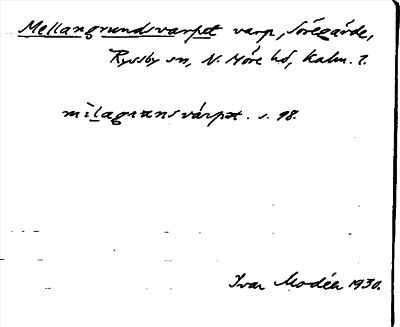 Mellangrundsvarpet varp, Sörégärde,
Ryssby sn, N. Möre hd, Kalm. l.
mìlagransvárpət. s. 98.
Ivar Modéer 1930.